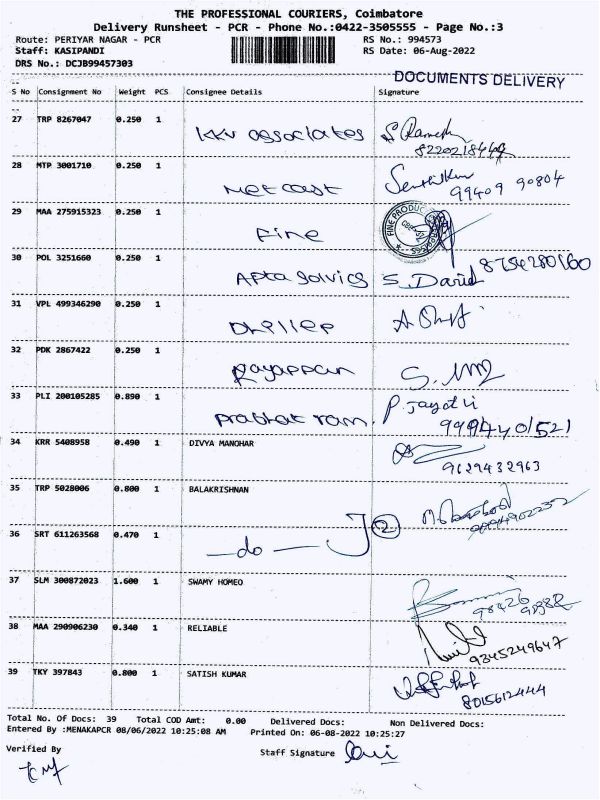 THE PROFESSIONAL COURIERS, Coimbatore
Delivery Runsheet - PCR - Phone No.:0422-3505555 - Page No.:3
Route: PERIYAR NAGAR - PCR RS No.: 994573
Staff: KASIPANDI RS Date: 06-Aug-2022
DRS No.: DCJB99457303
DOCUMENTS DELIVERY
S No Consignment No Weight PCS Consignee Details Signature
27 TRP 8267047 0.250 1 kkv associates S. Ramesh
28 MTP 3001710 0.250 1 Net coast Senthilkumar
99409 90804
29 MAA 275915323 0.250 1 Fine
FINE PRODUC
30 POL 3251660 0.250 1 S. David 8754280160
31 VPL 499346290 0.250 1
32 PDK 2867422 0.250 1 Rayappan
33 PLI 200105285 0.890 1 prabhat ram. P. Jayothi
9994401521
34 KRR 5408958 0.490 1 DIVYA MANOHAR
9629432963
35 TRP 5028006 0.800 1 BALAKRISHNAN
36 SRT 611263568 0.470 1 —do— 2
37 SLM 300872023 1.600 1 SWAMY HOMEO
38 MAA 290906230 0.340 1 RELIABLE
9345249647
39 TKY 397843 0.800 1 SATISH KUMAR
8015612444
Total No. Of Docs: 39 Total COD Amt: 0.00 Delivered Docs: Non Delivered Docs:
Entered By :MENAKAPCR 08/06/2022 10:25:08 AM Printed On: 06-08-2022 10:25:27
Verified By Staff Signature